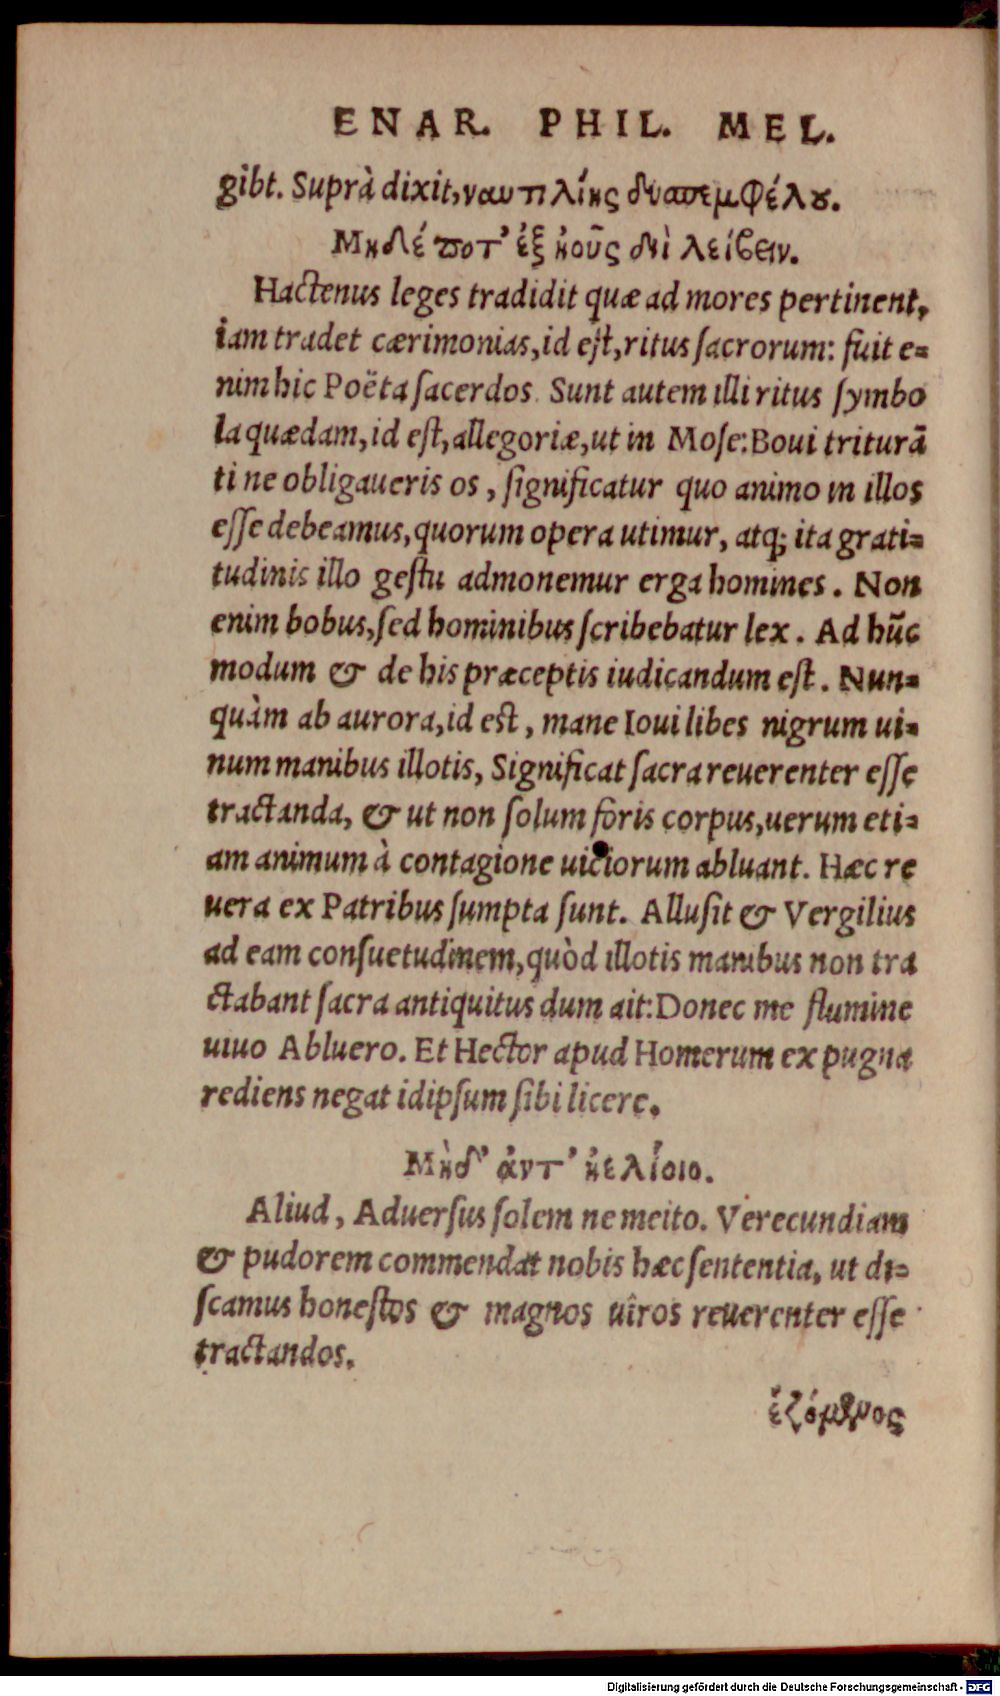 ENAR. PHIL. MEL.
gibt. Suprà dixit, ναυτιλίης δυσπεμφέλου.
Μηδέ ποτ' ἐξ ἠοῦς διὶ λείβειν.
Hactenus leges tradidit quæ ad mores pertinent,
iam tradet cærimonias, id eſt, ritus ſacrorum: fuit e=
nim hic Poëta ſacerdos. Sunt autem illi ritus ſymbo
la quædam, id eſt, allegoriæ, ut in Moſe: Boui triturã
ti ne obligaueris os, ſignificatur quo animo in illos
eſſe debeamus, quorum opera utimur, atq; ita grati=
tudinis illo geſtu admonemur erga homines. Non
enim bobus, ſed hominibus ſcribebatur lex. Ad hũc
modum & de his præceptis iudicandum eſt. Nun=
quàm ab aurora, id est, mane Ioui libes nigrum ui=
num manibus illotis, Significat ſacra reuerenter eſſe
tractanda, & ut non ſolum foris corpus, uerum eti=
am animum à contagione uiciorum abluant. Hæc re
uera ex Patribus ſumpta ſunt. Alluſit & Vergilius
ad eam conſuetudinem, quòd illotis manibus non tra
ctabant ſacra antiquitus dum ait: Donec me flumine
uiuo Abluero. Et Hector apud Homerum ex pugna
rediens negat idipſum ſibi licere.
Μηδ' ἀντ' ἠελίοιο.
Aliud, Aduerſus ſolem ne meito. Verecundiam
& pudorem commendat nobis hæc ſententia, ut di=
ſcamus honeſtos & magnos uiros reuerenter eſſe
tractandos.
ἑζόμενος
Digitalisierung gefördert durch die Deutsche Forschungsgemeinschaft - DFG